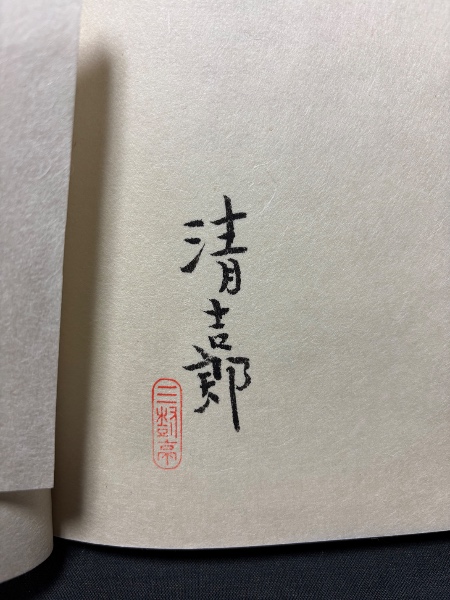 清吉郎
三樹亭